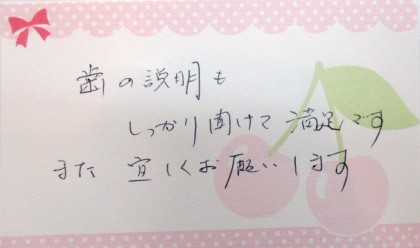 歯の説明も
しっかり聞けて満足です
また宜しくお願いします